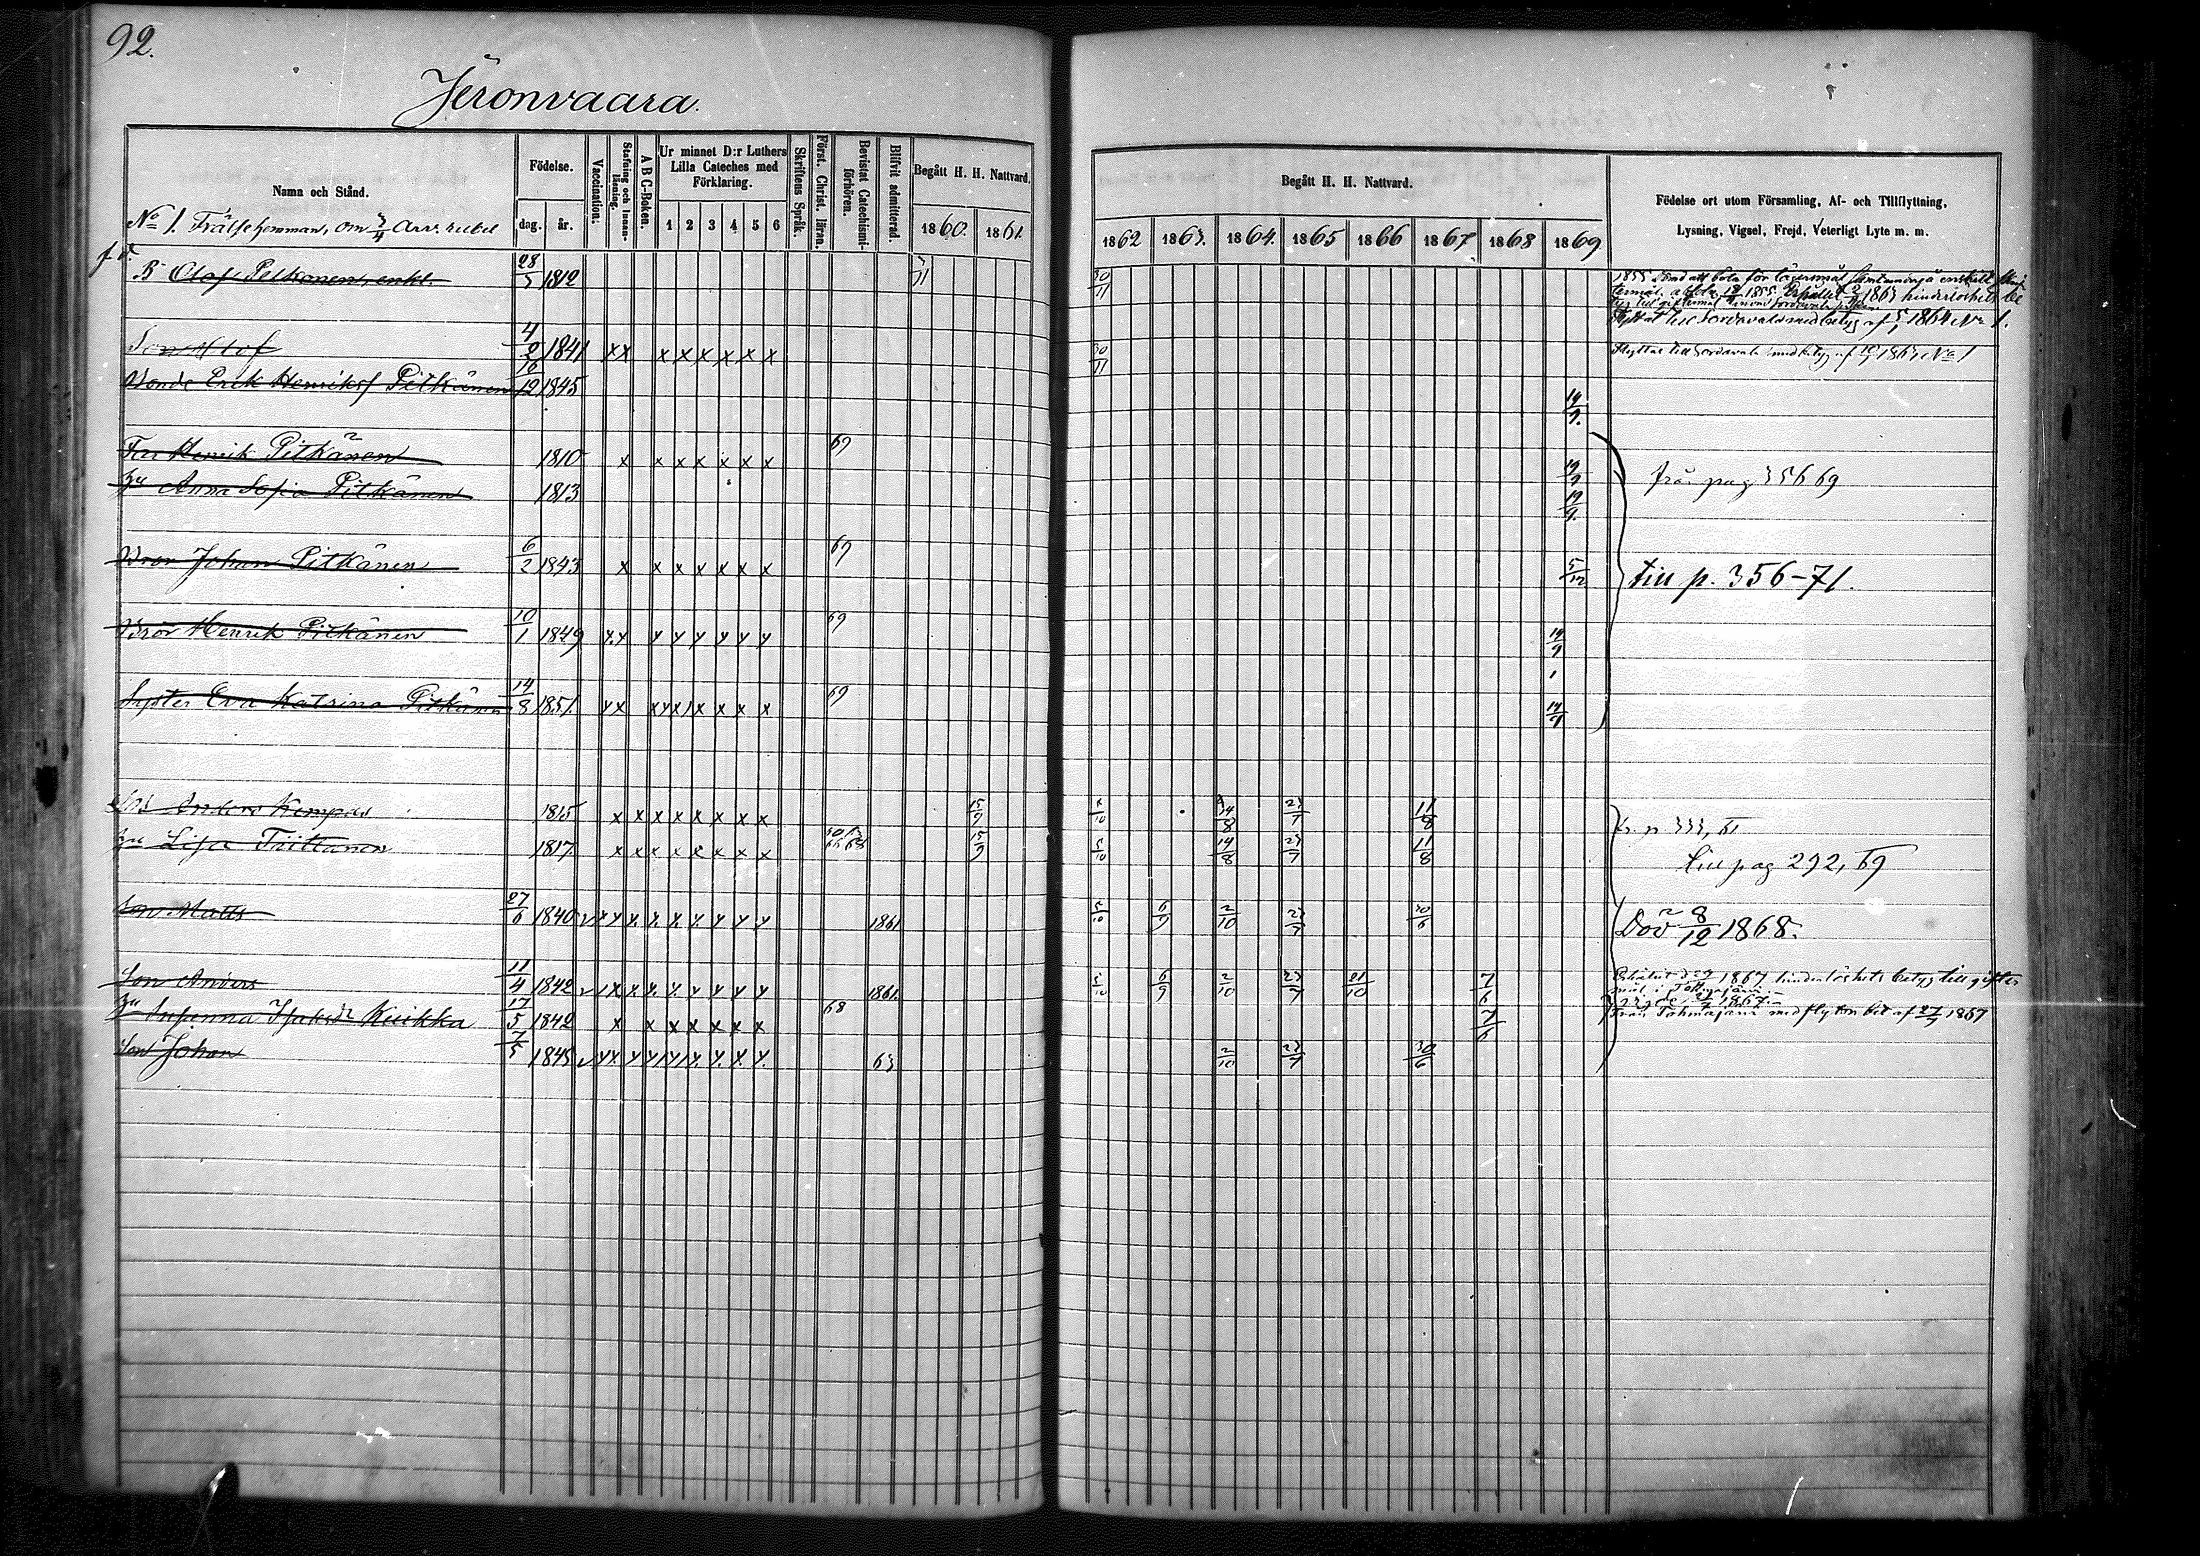 92.
Jeronvaara.
Namn och Stånd.
Födelse.
dag. år.
Vaccination.
Stafning och Innanläsning.
A B C-Boken.
Ur minnet D:r Luthers
Lilla Cateches med
Förklaring.
1 2 3 4 5 6
Skriftens Språk.
Först. Christ. läran.
Bevistat Catechismi-
förhören.
Blifvit admitterad.
Begått H. H. Nattvard.
1860. 1861.
Begått H. H. Nattvard.
1862 1863. 1864. 1865 1866 1867 1868 1869
Födelse ort utom Församling, Af- och Tillflyttning,
Lysning, Vigsel, Frejd, Veterligt Lyte m. m.
No 1. Frälsehemman, om 3/4 Arv. rubel
B Olof Pitkänen, enkl. 28/5 1812 30/11
Flyttat till Sordavala med betyg af 1864 No 1.
Son Olof 4/2 1841 x x x x x x x x 30/11 Flyttat till Sordavala med betyg af 1863 No 1
Bonde Erik Henriksf Pitkänen 16/12 1845 19/9.
Far Henrik Pitkänen 1810 x x x x x x x 69 19/9
frå. pag 356 69
Hu Anna Sofia Pitkänen 1813 19/9.
Bror Johan Pitkänen 6/2 1843 x x x x x x x 69 5/12 till p. 356-71.
Bror Henrik Pitkänen 10/1 1849 x x x x x x x x 69 19/9
Syster Eva Katrina Pitkänen 14/8 1851. x x x x x x x x 69 19/9
Anders Kempas 1815 x x x x x x x x 15/9 5/10 14/8 23/7 11/8 fr. p 333, 61
Hu Lisa Tiittanen 1817 x x x x x x x x 15/9 5/10 14/8 23/7 11/8
till pag 292, 69
Son Matts 27/6 1840 1861 5/10 6/9 2/10 23/7 30/6 Död 8/12 1868.
Son Anders 11/4 1842 1861. 5/10 6/9 2/10 23/7 21/10 7/6 1867 hinderlöshets betyg till gifter
mål i Tohmajärvi.
Hu Susanna Isaksdr Kuikka 17/5 1842 x x x x x x x 68 7/6 Från Tohmajärvi med flyttn bet. af 27/9 1867
Son Johan 7/5 1845 63 2/10 23/7 30/6